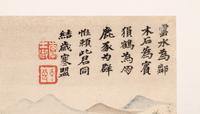 水為鄰
木石為賓
鶴為
鹿豕為群
惟賴此君同
結歲寒盟